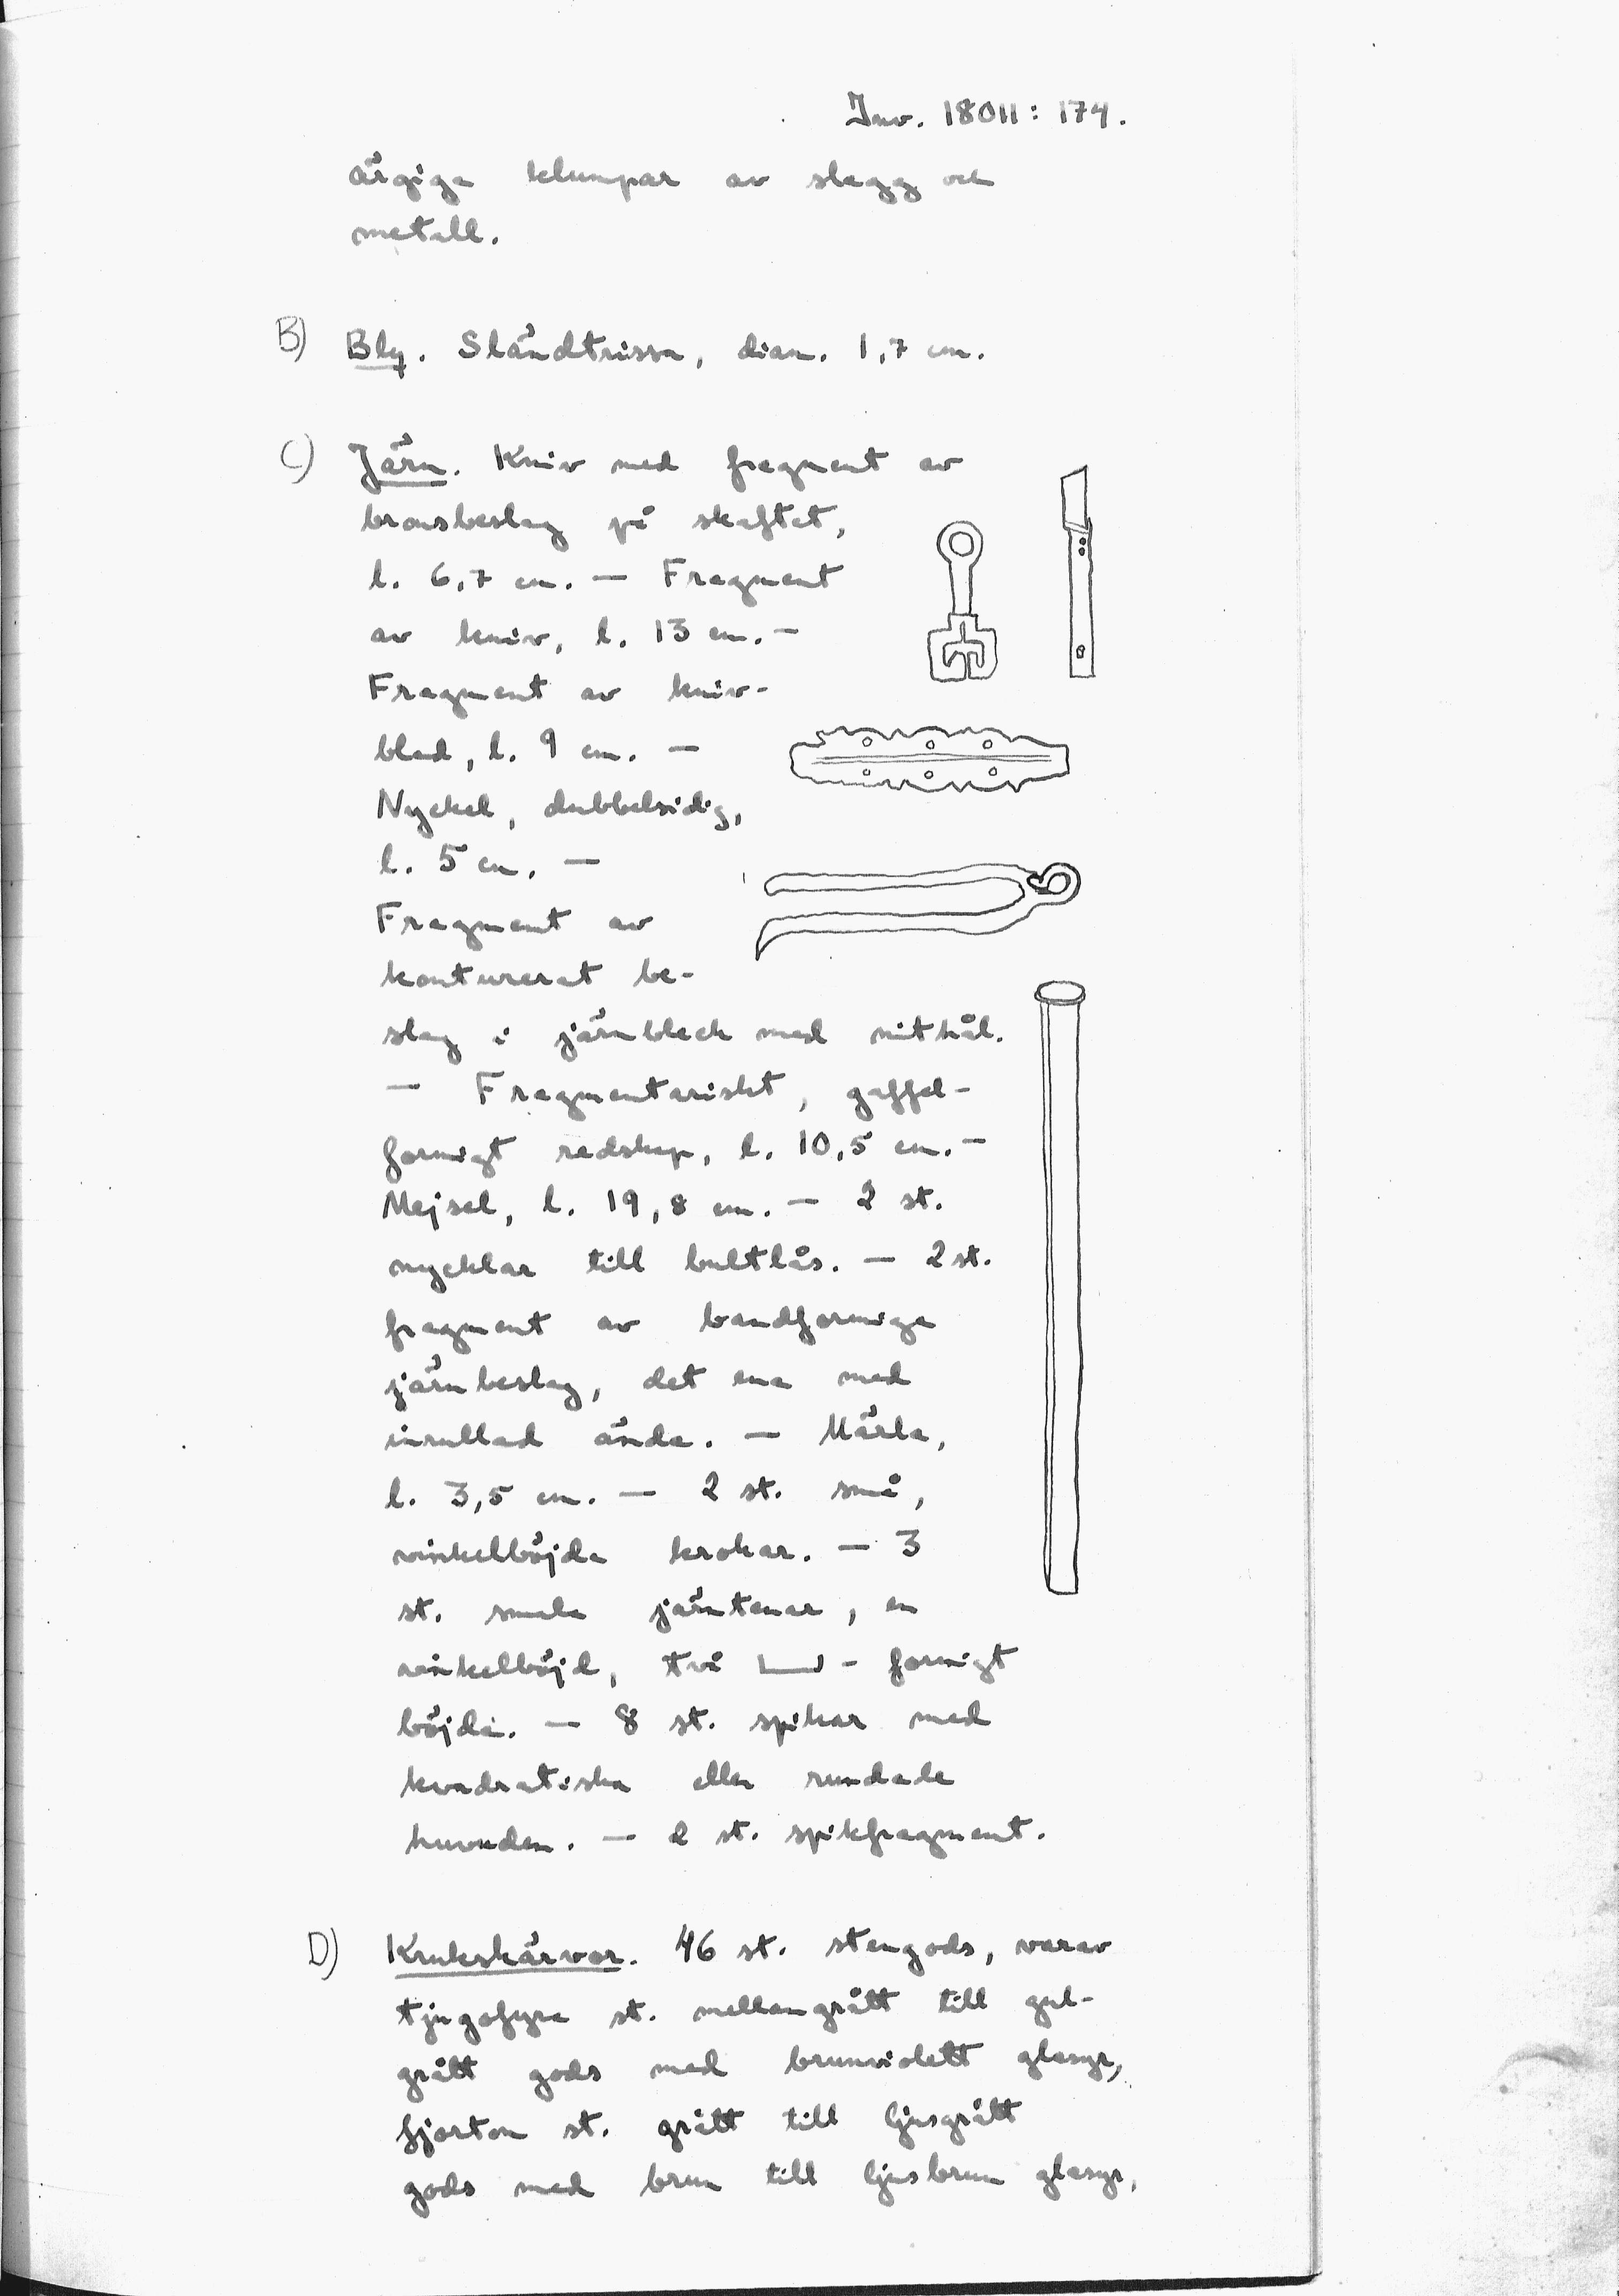 Inv. 18011: 174.
ärgiga klumpar av slagg och
metall.
B) Bly. Sländtrissa, diam. 1,7 cm.
C) Järn. Kniv med fragment av
bronsbeslag på skaftet,
l. 6,7 cm. — Fragment
av kniv, l. 13 cm. —
Fragment av kniv-
blad, l. 9 cm. —
Nyckel, dubbelsidig,
l. 5 cm. —
Fragment av
konturerat be-
slag i järnbleck med nithål.
— Fragmentariskt, gaffel-
formigt redskap, l. 10,5 cm. —
Mejsel, l. 19,8 cm. — 2 st.
nycklar till bultlås. — 2 st.
fragment av bandformiga
järnbeslag, det ena med
inrullad ända. — Märla,
l. 3,5 cm. — 2 st. små,
vinkelböjda krokar. — 3
st. smala järntenar, en
vinkelböjd, två - formigt
böjda. — 8 st. spikar med
kvadratiska eller rundade
huvuden. — 2 st. spikfragment.
D) Krukskärvor. 46 st. stengods, varav
tjugofyra st. mellangrått till gul-
grått gods med brunviolett glasyr,
fjorton st. grått till ljusgrått
gods med brun till ljusbrun glasyr,